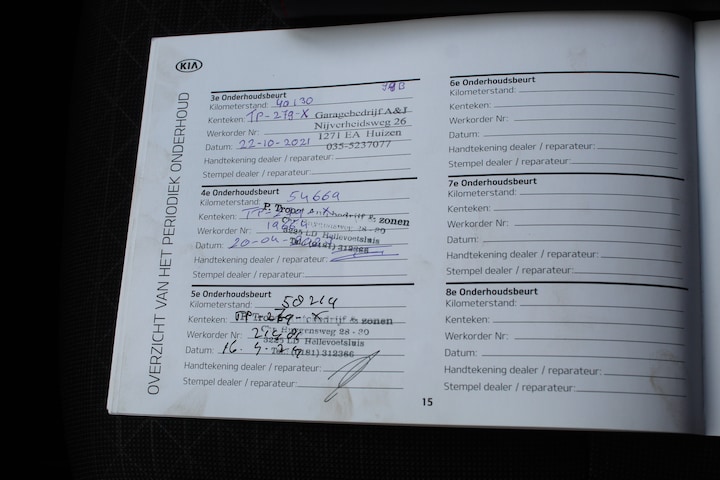 KIA
OVERZICHT VAN HET PERIODIEK ONDERHOUD
3e Onderhoudsbeurt
Kilometerstand: 40130
Kenteken: TP-279-X
Werkorder Nr:
Datum: 22-10-2021
Handtekening dealer / reparateur:
Stempel dealer / reparateur:
Garagebedrijf A&J
Nijverheidsweg 26
1271 EA Huizen
035-5237077
4e Onderhoudsbeurt
Kilometerstand: 54669
Kenteken:
Werkorder Nr:
Datum: 20-04-
Handtekening dealer / reparateur:
Stempel dealer / reparateur:
P. Trop & zonen
28 - 20
3225 LD Hellevoetsluis
Tel. (0181) 312366
5e Onderhoudsbeurt
Kilometerstand: 58214
Kenteken:
Werkorder Nr:
Datum: 16.
Handtekening dealer / reparateur:
Stempel dealer / reparateur:
& zonen
28 - 20
3225 LD Hellevoetsluis
Tel. (0181) 312366
6e Onderhoudsbeurt
Kilometerstand:
Kenteken:
Werkorder Nr:
Datum:
Handtekening dealer / reparateur:
Stempel dealer / reparateur:
7e Onderhoudsbeurt
Kilometerstand:
Kenteken:
Werkorder Nr:
Datum:
Handtekening dealer / reparateur:
Stempel dealer / reparateur:
8e Onderhoudsbeurt
Kilometerstand:
Kenteken:
Werkorder Nr:
Datum:
Handtekening dealer / reparateur:
Stempel dealer / reparateur:
15